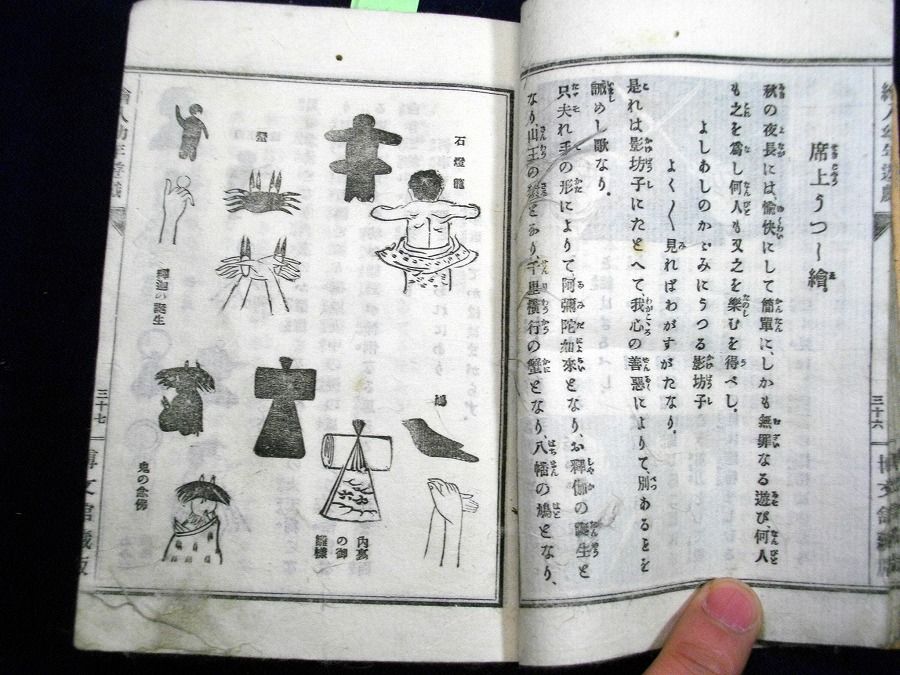 席上うつし繪
秋の夜長には、愉快にして簡單に、しかも無罪なる遊び、何人
も之を爲し何人も又之を樂むを得べし。
よしあしのかゞみにうつる影坊子
よく〳〵見ればわがすがたなり。
是れは影坊子にたとへて、我心の善惡によりて、別あるとを
誡めし歌なり。
只夫れ手の形によりて、阿彌陀如來となり、お釋伽の誕生と
なり、山王の猿となり、千里横行の蟹となり、八幡の鳩となり、
三十六
石燈籠
蟹
釋迦の誕生
鳩
内裏
の御
雛様
鬼の念佛
三十七
博文館藏版